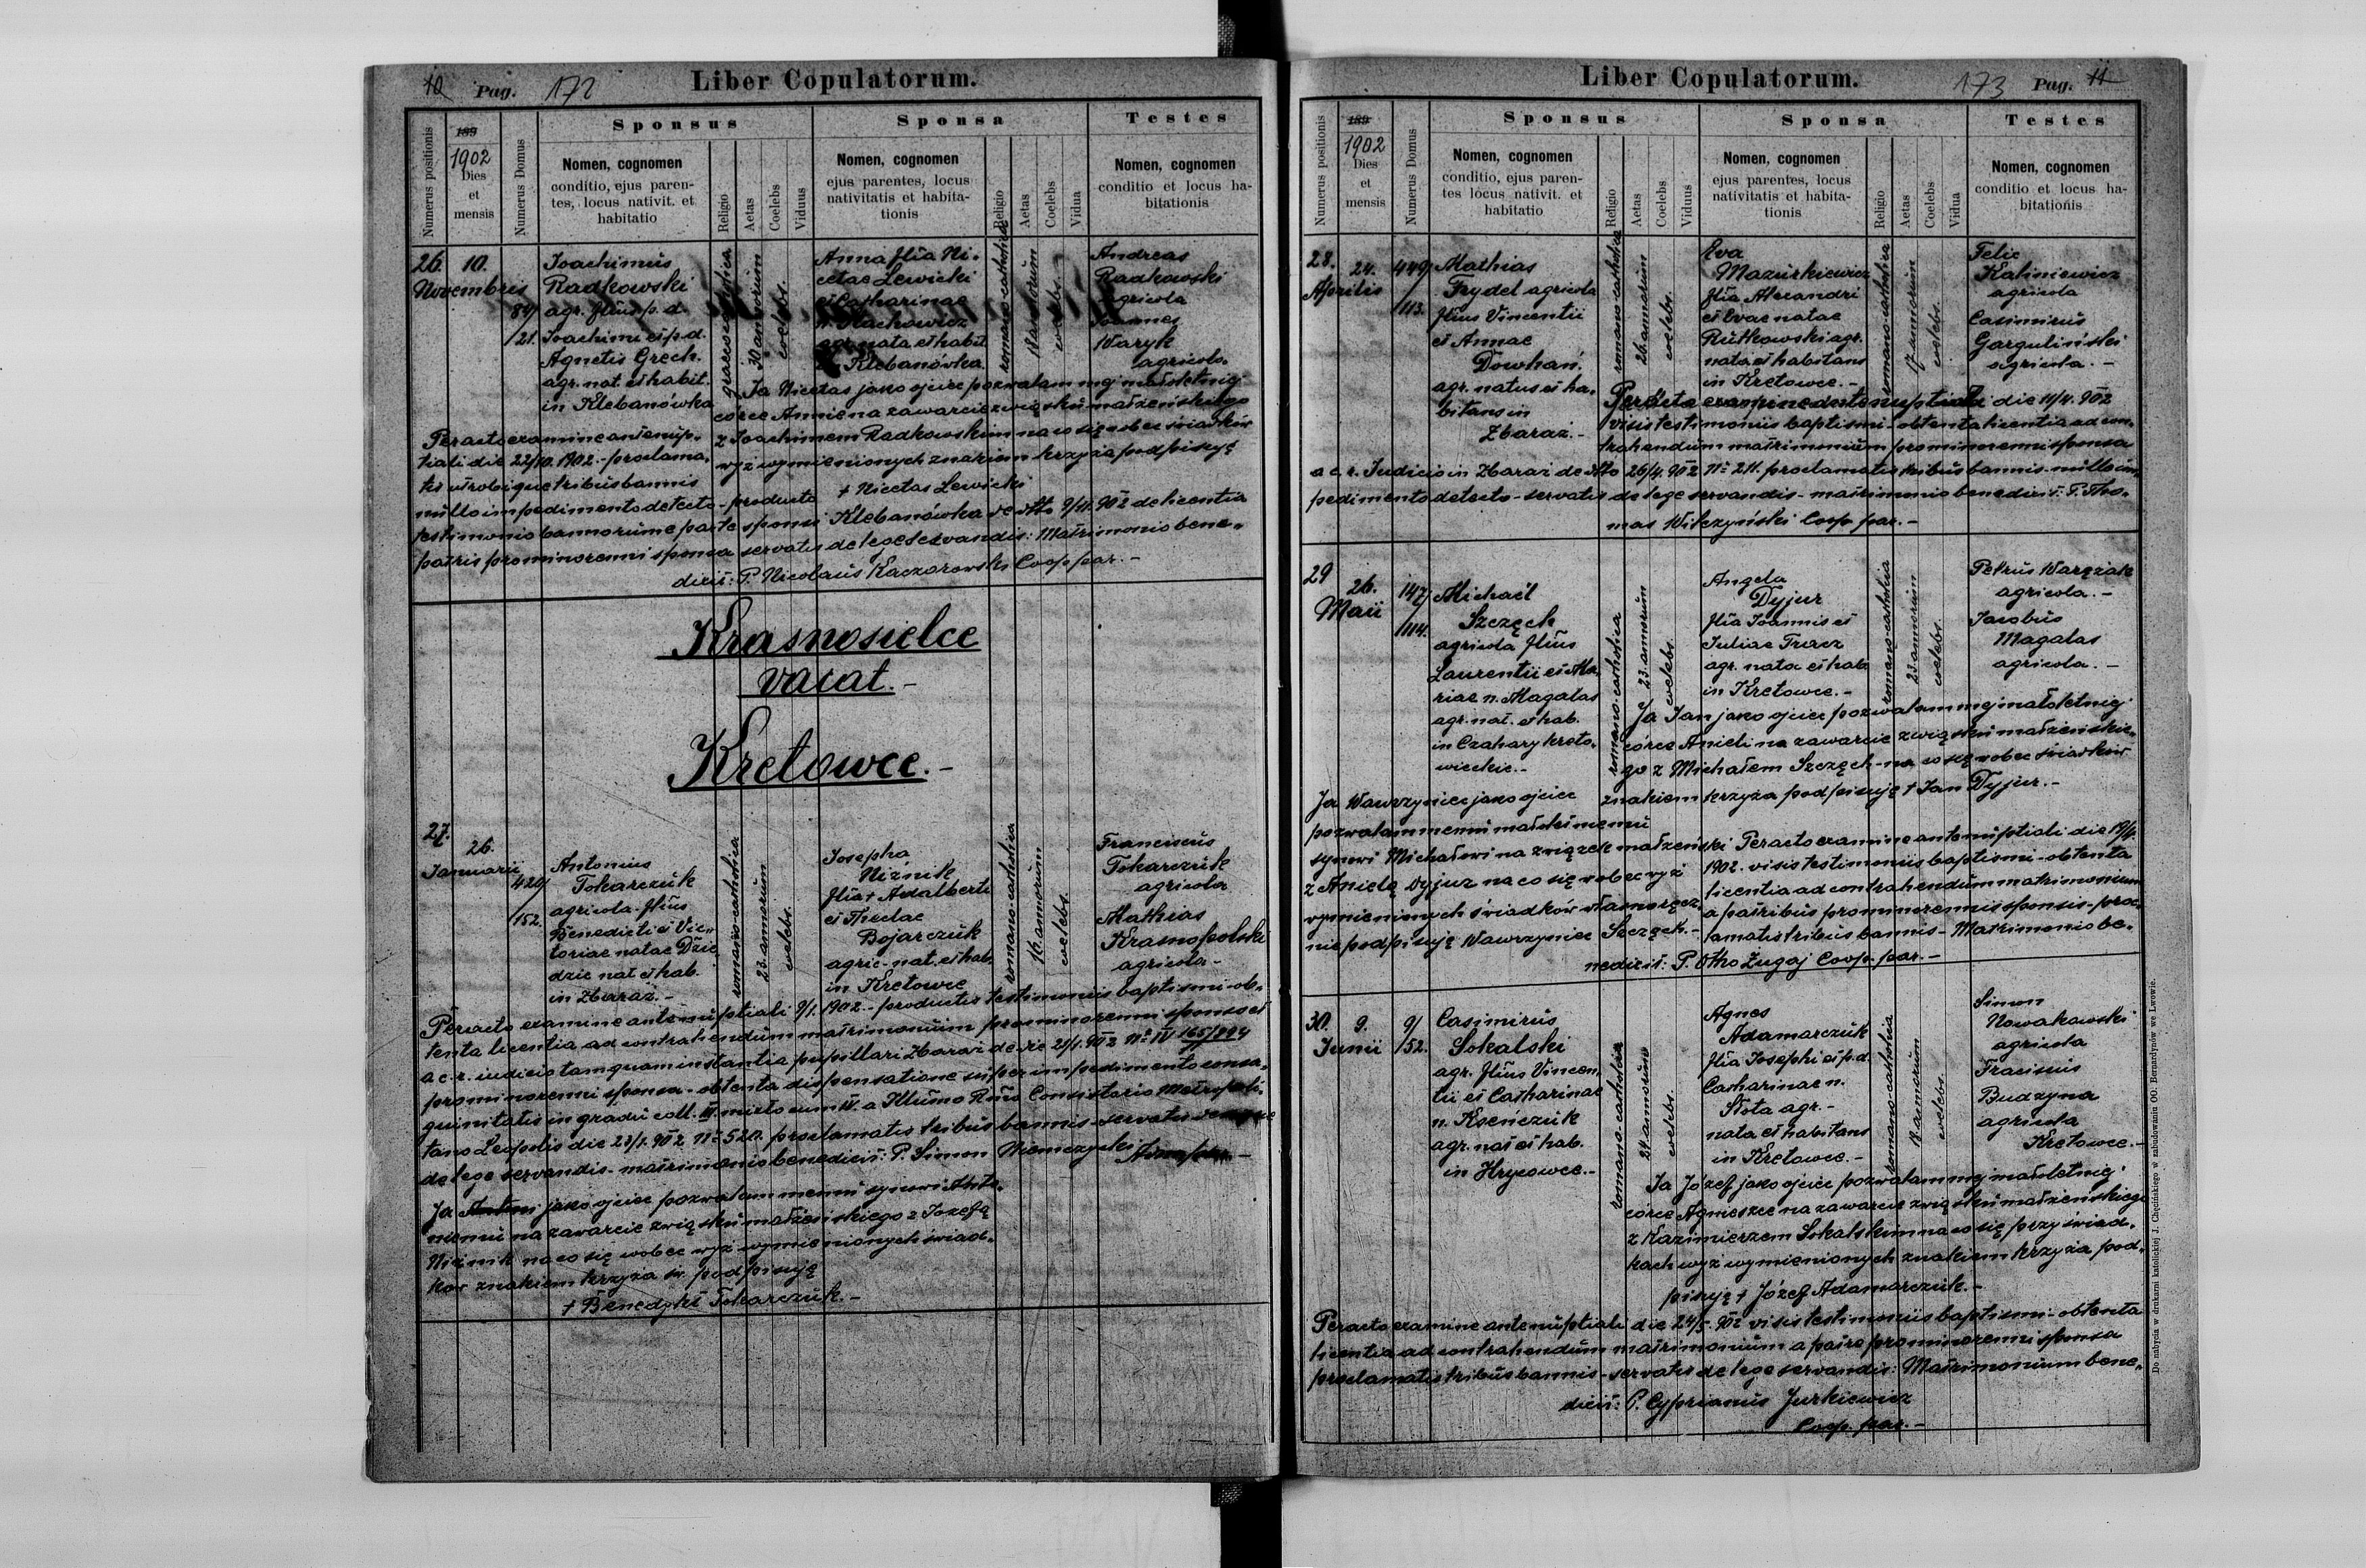 10 Pag. 172 Liber Copulatorum.
Numerus positionis
189
1902
Dies
et
mensis
Numerus Domus
Sponsus
Nomen, cognomen
conditio, ejus paren-
tes, locus nativit. et
habitatio
Religio
Aetas
Coelebs
Viduus
Sponsa
Nomen, cognomen
ejus parentes, locus
nativitatis et habita-
tionis
Religio
Aetas
Coelebs
Vidua
Testes
Nomen, cognomen
conditio et locus ha-
bitationis
26. 10.
Novembris
84/
/21.
Joachimus
Radkowski
agr. filius p. d.
Joachimi et p. d.
Agnetis Grech.
agr. nat. et habit.
in Klebanówka
graeco-catholica
30 annorum
coelebs.
Anna filia Ni-
cetae Lewicki
et Catharinae
agr. nata et habit.
Klebanówka
romano-catholica
annorum
coelebs.
Andreas
Radkowski
agricola
Joannes
Waryk
agricola.
Ja Nicetas jako ojciec pozwalam mej małoletniej
córce Annie na zawarcie związku małżeńskiego
z Joachimem Radkowskim na co się wobec świadków
wyż wymienionych znakiem krzyża podpisuję
+ Nicetas Lewicki
Peracto examine antenup-
tiali die 22/10. 1902. - proclama-
tis utrobique tribus bannis
nullo impedimento detecto - producto
testimonio bannorum e parte sponsi Klebanówka de dtto 9/11. 902 de licentia
patris pro minorenni sponsa servatis de lege servandis: Matrimonio bene-
dixit: P. Nicolaus Kaczorowski Coop. par. -
Krasnosielce
vacat. -
Kretowce. -
27. 26.
Januarii
420/
/152.
Antonius
Tokarczuk
agricola - filius
Benedicti et Vic-
toriae natae Dzie-
dzic nat et hab.
in Zbaraż. -
romano-catholica
23 annorum
coelebs.
Josepha
Niżnik
filia + Adalberti
et Theclae
Bojarczuk
agric. - nat. et hab.
in Kretowce
romano-catholica
16 annorum
coelebs.
Franciscus
Tokarczuk
agricola
Mathias
Krasnopolski
agricola -
Peracto examine antenuptiali 9/1. 1902. - productis testimoniis baptismi - ob-
tenta licentia ad contrahendum matrimonium pro minorenni sponso et
a c. r. iudicio tamquam instantia pupillari Zbaraż de die 21/1. 902 No IV 165/894
pro minorenni sponsa - obtenta dispensatione super impedimento consa-
guinitatis in gradu coll. III. mixto cum IV. a Illumo Rmo Consistorio Metropoli-
tano Leopolis die 23/1. 902 No 520. proclamatis tribus bannis - servatis
de lege servandis - matrimonio benedixit: P. Simon Niemczycki
Ja jako ojciec pozwalam memu synowi Anto-
niemu na zawarcie związku małżeńskiego z Józefą
Niżnik na co się wobec wyż wymienionych świad-
ków znakiem krzyża św. podpisuję
+ Benedykt Tokarczuk. -
Liber Copulatorum. 173 Pag. 11
Numerus positionis
189
1902
Dies
et
mensis
Numerus Domus
Sponsus
Nomen, cognomen
conditio, ejus paren-
tes locus nativit. et
habitatio
Religio
Aetas
Coelebs
Viduus
Sponsa
Nomen, cognomen
ejus parentes, locus
nativitatis et habita-
tionis
Religio
Aetas
Coelebs
Vidua
Testes
Nomen, cognomen
conditio et locus ha-
bitationis
28. 24.
Aprilis
449/
/113.
Mathias
Frydel agricola
filius Vincentii
et Annae
Dowhań
agr. natus et ha-
bitans in
Zbaraż. -
romano-catholica
26 annorum
coelebs.
Eva
Mazurkiewicz
filia Alexandri
et Evae natae
Rutkowski agr.
nata et habitans
in Kretowce. -
romano-catholica
17 annorum
coelebs.
Felix
Kaliniewicz
agricola
Casimirus
Garguliński
agricola. -
Peracto examine antenuptiali die 11/4. 902
visis testimoniis baptismi - obtenta licentia ad con-
trahendum matrimonium pro minorenni sponsa
a c. r. Judicio in Zbaraż de dtto 26/4. 902 No 211. proclamatis tribus bannis - nullo im-
pedimento detecto - servatis de lege servandis - matrimonio benedixit: P. Tho-
mas Wilczyński Coop. par. -
29 26.
Maii
147/
/114.
Michael
Szczęch
agricola filius
Laurentii et Ma-
riae n. Magalas
agr. nat. et hab.
in Czahary kreto-
wieckie. -
romano-catholica
23 annorum
coelebs
Angela
Dyjur
filia Joannis et
Juliae Tracz
agr. nata et hab.
in Kretowce. -
romano-catholica
23 annorum
coelebs.
Petrus Warężak
agricola. -
Jacobus
Magalas
agricola. -
Ja Jan jako ojciec pozwalam mej małoletniej
córce Anieli na zawarcie związku małżeńskie-
go z Michałem Szczęch - na co się wobec świadków
znakiem krzyża podpisuję + Jan Dyjur. -
Ja Wawrzyniec jako ojciec
pozwalam memu małoletniemu
synowi Michałowi na związek małżeński
z Anielą Dyjur na co się wobec wyż
wymienionych świadków własnoręcz-
nie podpisuję Wawrzyniec Szczęch. -
Peracto examine antenuptiali die
1902. visis testimoniis baptismi - obtenta
licentia ad contrahendum matrimonium
a patribus pro minorennis sponsis - proc-
lamatis tribus bannis - Matrimonio be-
nedixit: P. Otho Zugaj Coop. par. -
30. 9.
Junii
9/
/52.
Casimirus
Sokalski
agr. filius Vincen-
tii et Catharinae
n. Kseńczuk
agr. nat et hab.
in Hrycowce. -
romano-catholica
24 annorum
coelebs.
Agnes
Adamarczuk
filia Josephi et p. d.
Catharinae n.
Słota agr. -
nata et habitans
in Kretowce. -
romano-catholica
18 annorum
coelebs.
Simon
Nowakowski
agricola
Budzyna
agricola
Kretowce. -
Ja Józef jako ojciec pozwalam mej małoletniej
córce Agnieszce na zawarcie związku małżeńskiego
z Kazimierzem Sokalskim na co się przy świad-
kach wyż wymienionych znakiem krzyża pod-
pisuję + Józef Adamarczuk. -
Peracto examine antenuptiali die 24/5. 902 visis testimoniis baptismi - obtenta
licentia ad contrahendum matrimonium a patre pro minorenni sponsa
proclamatis tribus bannis - servatis de lege servandis: Matrimonium bene-
dixit: P. Cyprianus Jurkiewicz
Coop. par. -
Do nabycia w drukarni katolickiej J. Chęcińskiego w zabudowaniu OO. Bernardynów we Lwowie.